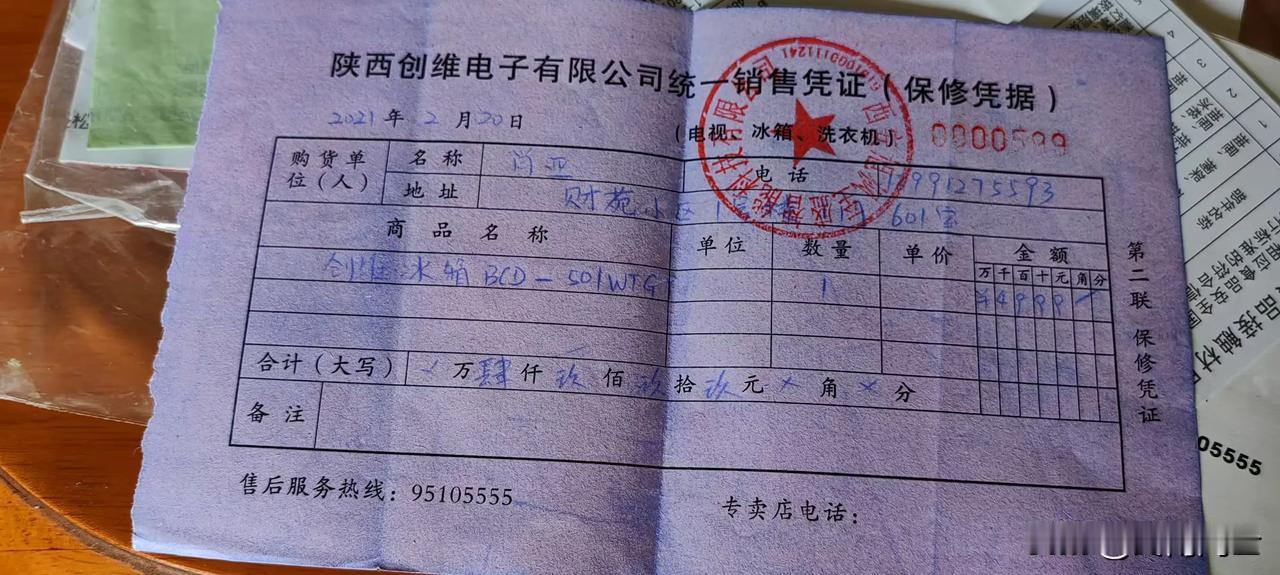 陕西创维电子有限公司统一销售凭证（保修凭据）
2021年2月20日
（电视、冰箱、洗衣机）
0000599
购货单位（人） 名称 肖亚 电话 1991275593
地址 财苑小区1 601室
商品名称 单位 数量 单价 金额
万 千 百 十 元 角 分
创维冰箱BCD-501WTG 1 ¥4999
合计（大写） 万肆仟玖佰玖拾玖元×角×分
备注
第二联 保修凭证
售后服务热线：95105555
专卖店电话：
05555